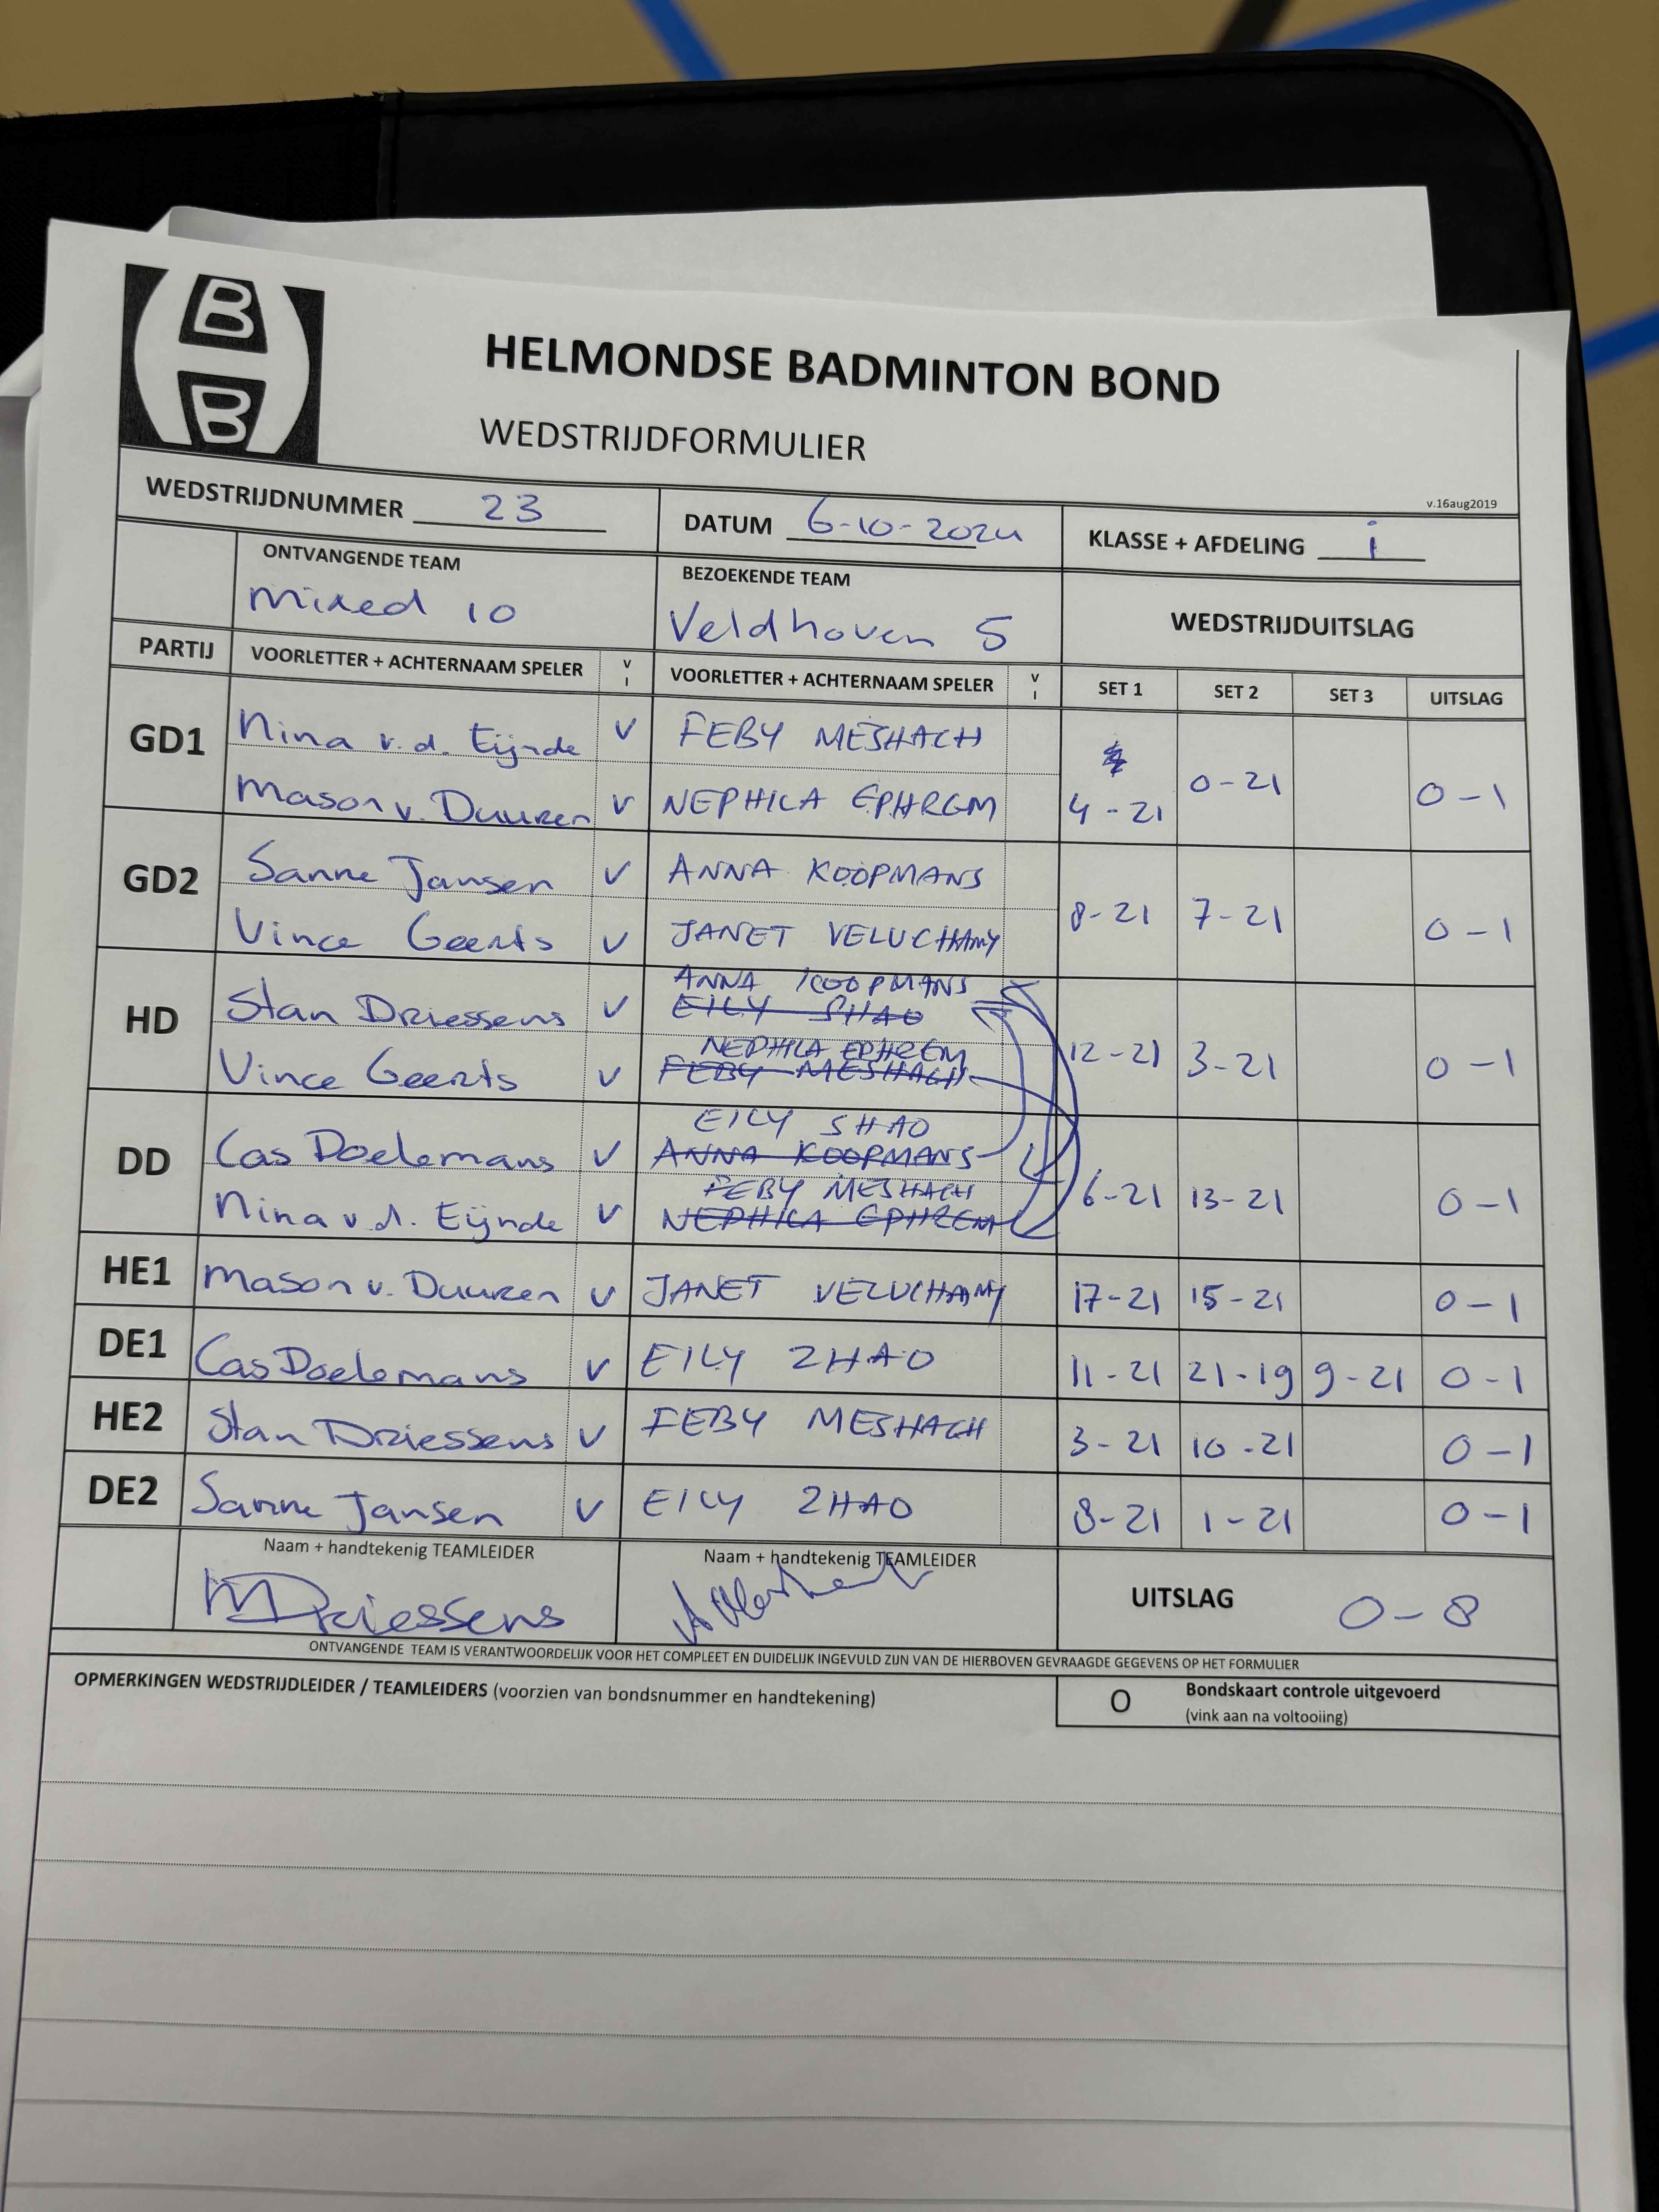 B
B
HELMONDSE BADMINTON BOND
WEDSTRIJDFORMULIER
v.16aug2019
WEDSTRIJDNUMMER 23 DATUM 6-10-2024 KLASSE + AFDELING i
ONTVANGENDE TEAM BEZOEKENDE TEAM WEDSTRIJDUITSLAG
mixed 10 Veldhoven 5
PARTIJ VOORLETTER + ACHTERNAAM SPELER V I VOORLETTER + ACHTERNAAM SPELER V I SET 1 SET 2 SET 3 UITSLAG
GD1 Nina v.d. Eijnde V FEBY MESHACH
Mason v. Duuren V NEPHILA EPHREM 4-21 0-21 0-1
GD2 Sanne Jansen V ANNA KOOPMANS
Vince Geerts V JANET VELUCHAMY 8-21 7-21 0-1
ANNA KOOPMANS
HD Stan Driessens V EILY SHAO
NEPHILA EPHREM 12-21 3-21 0-1
Vince Geerts V FEBY MESHACH
EILY SHAO
DD Cas Doelemans V ANNA KOOPMANS
FEBY MESHACH 6-21 13-21 0-1
Nina v.d. Eijnde V NEPHILA EPHREM
HE1 Mason v. Duuren V JANET VELUCHAMY 17-21 15-21 0-1
DE1 Cas Doelemans V EILY ZHAO 11-21 21-19 9-21 0-1
HE2 Stan Driessens V FEBY MESHACH 3-21 10-21 0-1
DE2 Sanne Jansen V EILY ZHAO 8-21 1-21 0-1
Naam + handtekenig TEAMLEIDER Naam + handtekenig TEAMLEIDER UITSLAG 0-8
MDriessens
ONTVANGENDE TEAM IS VERANTWOORDELIJK VOOR HET COMPLEET EN DUIDELIJK INGEVULD ZIJN VAN DE HIERBOVEN GEVRAAGDE GEGEVENS OP HET FORMULIER
OPMERKINGEN WEDSTRIJDLEIDER / TEAMLEIDERS (voorzien van bondsnummer en handtekening) O Bondskaart controle uitgevoerd
(vink aan na voltooiing)